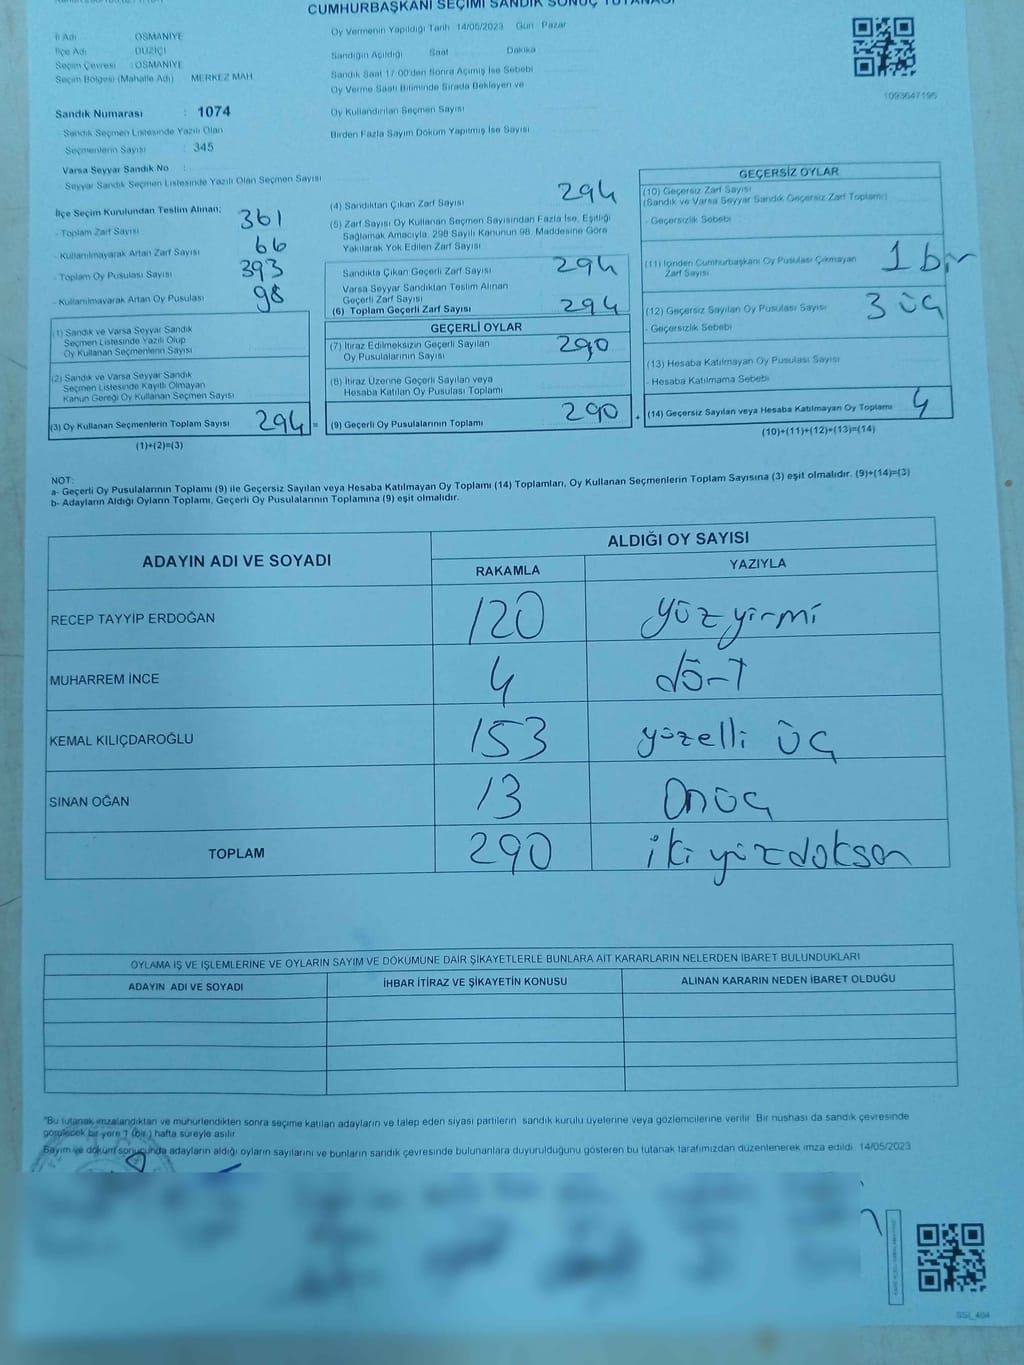 CUMHURBAŞKANI SEÇİMİ SANDIK SONUÇ TUTANAĞI
İl Adı : OSMANİYE
İlçe Adı : DÜZİÇİ
Seçim Çevresi : OSMANİYE
Seçim Bölgesi (Mahalle Adı) : MERKEZ MAH
Sandık Numarası : 1074
Sandık Seçmen Listesinde Yazılı Olan
Seçmenlerin Sayısı : 345
Varsa Seyyar Sandık No :
Seyyar Sandık Seçmen Listesinde Yazılı Olan Seçmen Sayısı :
Oy Vermenin Yapıldığı Tarih 14/05/2023 Gün : Pazar
Sandığın Açıldığı Saat Dakika
Sandık Saat 17:00'den Sonra Açılmış İse Sebebi
Oy Verme Saati Bitiminde Sırada Bekleyen ve
Oy Kullandırılan Seçmen Sayısı
Birden Fazla Sayım Döküm Yapılmış İse Sayısı
1093647195
İlçe Seçim Kurulundan Teslim Alınan;
- Toplam Zarf Sayısı 361
- Kullanılmayarak Artan Zarf Sayısı 66
- Toplam Oy Pusulası Sayısı 393
- Kullanılmayarak Artan Oy Pusulası 98
(1) Sandık ve Varsa Seyyar Sandık
Seçmen Listesinde Yazılı Olup
Oy Kullanan Seçmenlerin Sayısı
(2) Sandık ve Varsa Seyyar Sandık
Seçmen Listesinde Kayıtlı Olmayan
Kanun Gereği Oy Kullanan Seçmen Sayısı
(3) Oy Kullanan Seçmenlerin Toplam Sayısı 294 =
(1)+(2)=(3)
(4) Sandıktan Çıkan Zarf Sayısı 294
(5) Zarf Sayısı Oy Kullanan Seçmen Sayısından Fazla İse, Eşitliği
Sağlamak Amacıyla, 298 Sayılı Kanunun 98. Maddesine Göre
Yakılarak Yok Edilen Zarf Sayısı
Sandıkta Çıkan Geçerli Zarf Sayısı 294
Varsa Seyyar Sandıktan Teslim Alınan
Geçerli Zarf Sayısı
(6) Toplam Geçerli Zarf Sayısı 294
GEÇERLİ OYLAR
(7) İtiraz Edilmeksizin Geçerli Sayılan
Oy Pusulalarının Sayısı 290
(8) İtiraz Üzerine Geçerli Sayılan veya
Hesaba Katılan Oy Pusulası Toplamı
(9) Geçerli Oy Pusulalarının Toplamı 290 +
GEÇERSİZ OYLAR
(10) Geçersiz Zarf Sayısı
(Sandık ve Varsa Seyyar Sandık Geçersiz Zarf Toplamı)
- Geçersizlik Sebebi
(11) İçinden Cumhurbaşkanı Oy Pusulası Çıkmayan
Zarf Sayısı 1 bir
(12) Geçersiz Sayılan Oy Pusulası Sayısı 3 üç
- Geçersizlik Sebebi
(13) Hesaba Katılmayan Oy Pusulası Sayısı
- Hesaba Katılmama Sebebi
(14) Geçersiz Sayılan veya Hesaba Katılmayan Oy Toplamı 4
(10)+(11)+(12)+(13)=(14)
NOT:
a- Geçerli Oy Pusulalarının Toplamı (9) ile Geçersiz Sayılan veya Hesaba Katılmayan Oy Toplamı (14) Toplamları, Oy Kullanan Seçmenlerin Toplam Sayısına (3) eşit olmalıdır. (9)+(14)=(3)
b- Adayların Aldığı Oyların Toplamı, Geçerli Oy Pusulalarının Toplamına (9) eşit olmalıdır.
ADAYIN ADI VE SOYADI ALDIĞI OY SAYISI
RAKAMLA YAZIYLA
RECEP TAYYİP ERDOĞAN 120 yüzyirmi
MUHARREM İNCE 4 dört
KEMAL KILIÇDAROĞLU 153 yüzelli üç
SİNAN OĞAN 13 onüç
TOPLAM 290 iki yüzdoksan
OYLAMA İŞ VE İŞLEMLERİNE VE OYLARIN SAYIM VE DÖKÜMÜNE DAİR ŞİKAYETLERLE BUNLARA AİT KARARLARIN NELERDEN İBARET BULUNDUKLARI
ADAYIN ADI VE SOYADI İHBAR İTİRAZ VE ŞİKAYETİN KONUSU ALINAN KARARIN NEDEN İBARET OLDUĞU
"Bu tutanak imzalandıktan ve mühürlendikten sonra seçime katılan adayların ve talep eden siyasi partilerin sandık kurulu üyelerine veya gözlemcilerine verilir. Bir nüshası da sandık çevresinde
görülecek bir yere 1 (bir) hafta süreyle asılır.
Sayım ve döküm sonucunda adayların aldığı oyların sayılarını ve bunların sandık çevresinde bulunanlara duyurulduğunu gösteren bu tutanak tarafımızdan düzenlenerek imza edildi. 14/05/2023